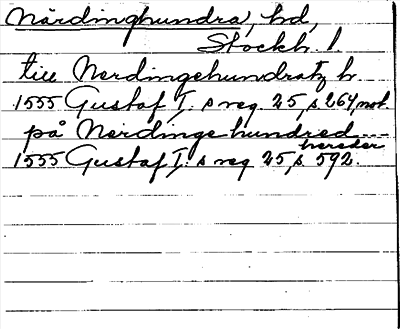 Närdinghundra, hd,
Stockh. l.
till Nerdingehundratz h.
1555 Gustaf I. s reg. 25, s 264, not.
på Nerdinge hundred ---
hereder
1555 Gustaf I. s reg 25, s. 592.